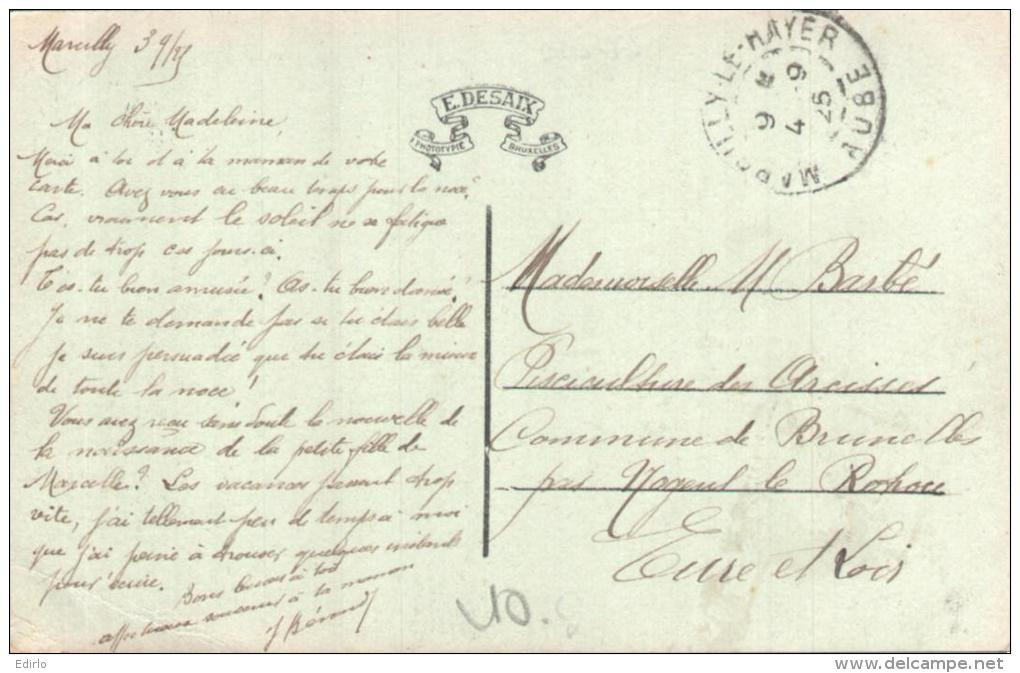 Marcilly 3 9/25
Ma chère Madeleine,
Merci à toi et à ta maman de votre
carte. Avez vous eu beau temps pour la noce?
Car, vraiment le soleil ne se fatigue
pas de trop ces jours-ci.
T'es-tu bien amusée? As-tu bien dansé?
Je ne te demande pas si tu étais belle
je suis persuadée que tu étais la mieux
de toute la noce!
Vous avez reçu sans doute la nouvelle de
la naissance de la petite fille de
Marcelle? Les vacances passent trop
vite, j'ai tellement peu de temps à moi
que j'ai peine à trouver quelques instants
pour écrire.
Bons baisers à toi
affectueux souvenirs à ta maman
E. DESAIX
PHOTOTYPIE BRUXELLES
MARCILLY-LE-HAYER AUBE
9 M
4 9
25
Mademoiselle M Barbé
Pisciculture des Arcisses
Commune de Brunelles
par Nogent le Rotrou
Eure et Loir
Edirlo
delcampe.net